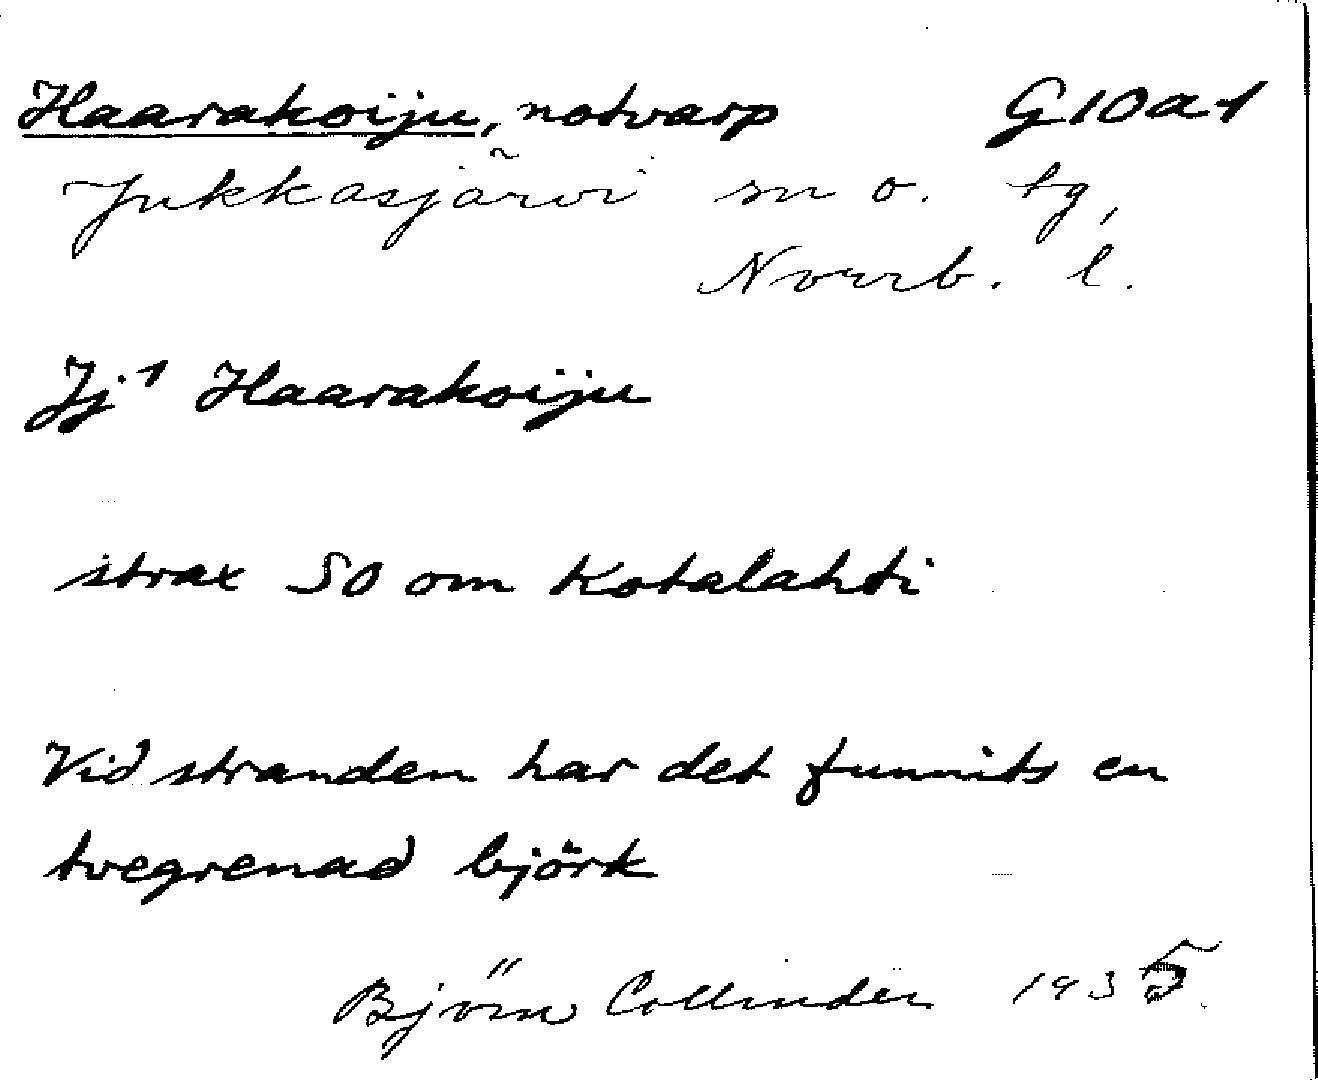 Haarakoiju, notvarp G10a1
Jukkasjärvi sn o. tg,
Norrb. l.
Jj1 Haarakoiju
strax SO om Kotalahti
Vid stranden har det funnits en
tvegrenad björk
Björn Collinder 1935